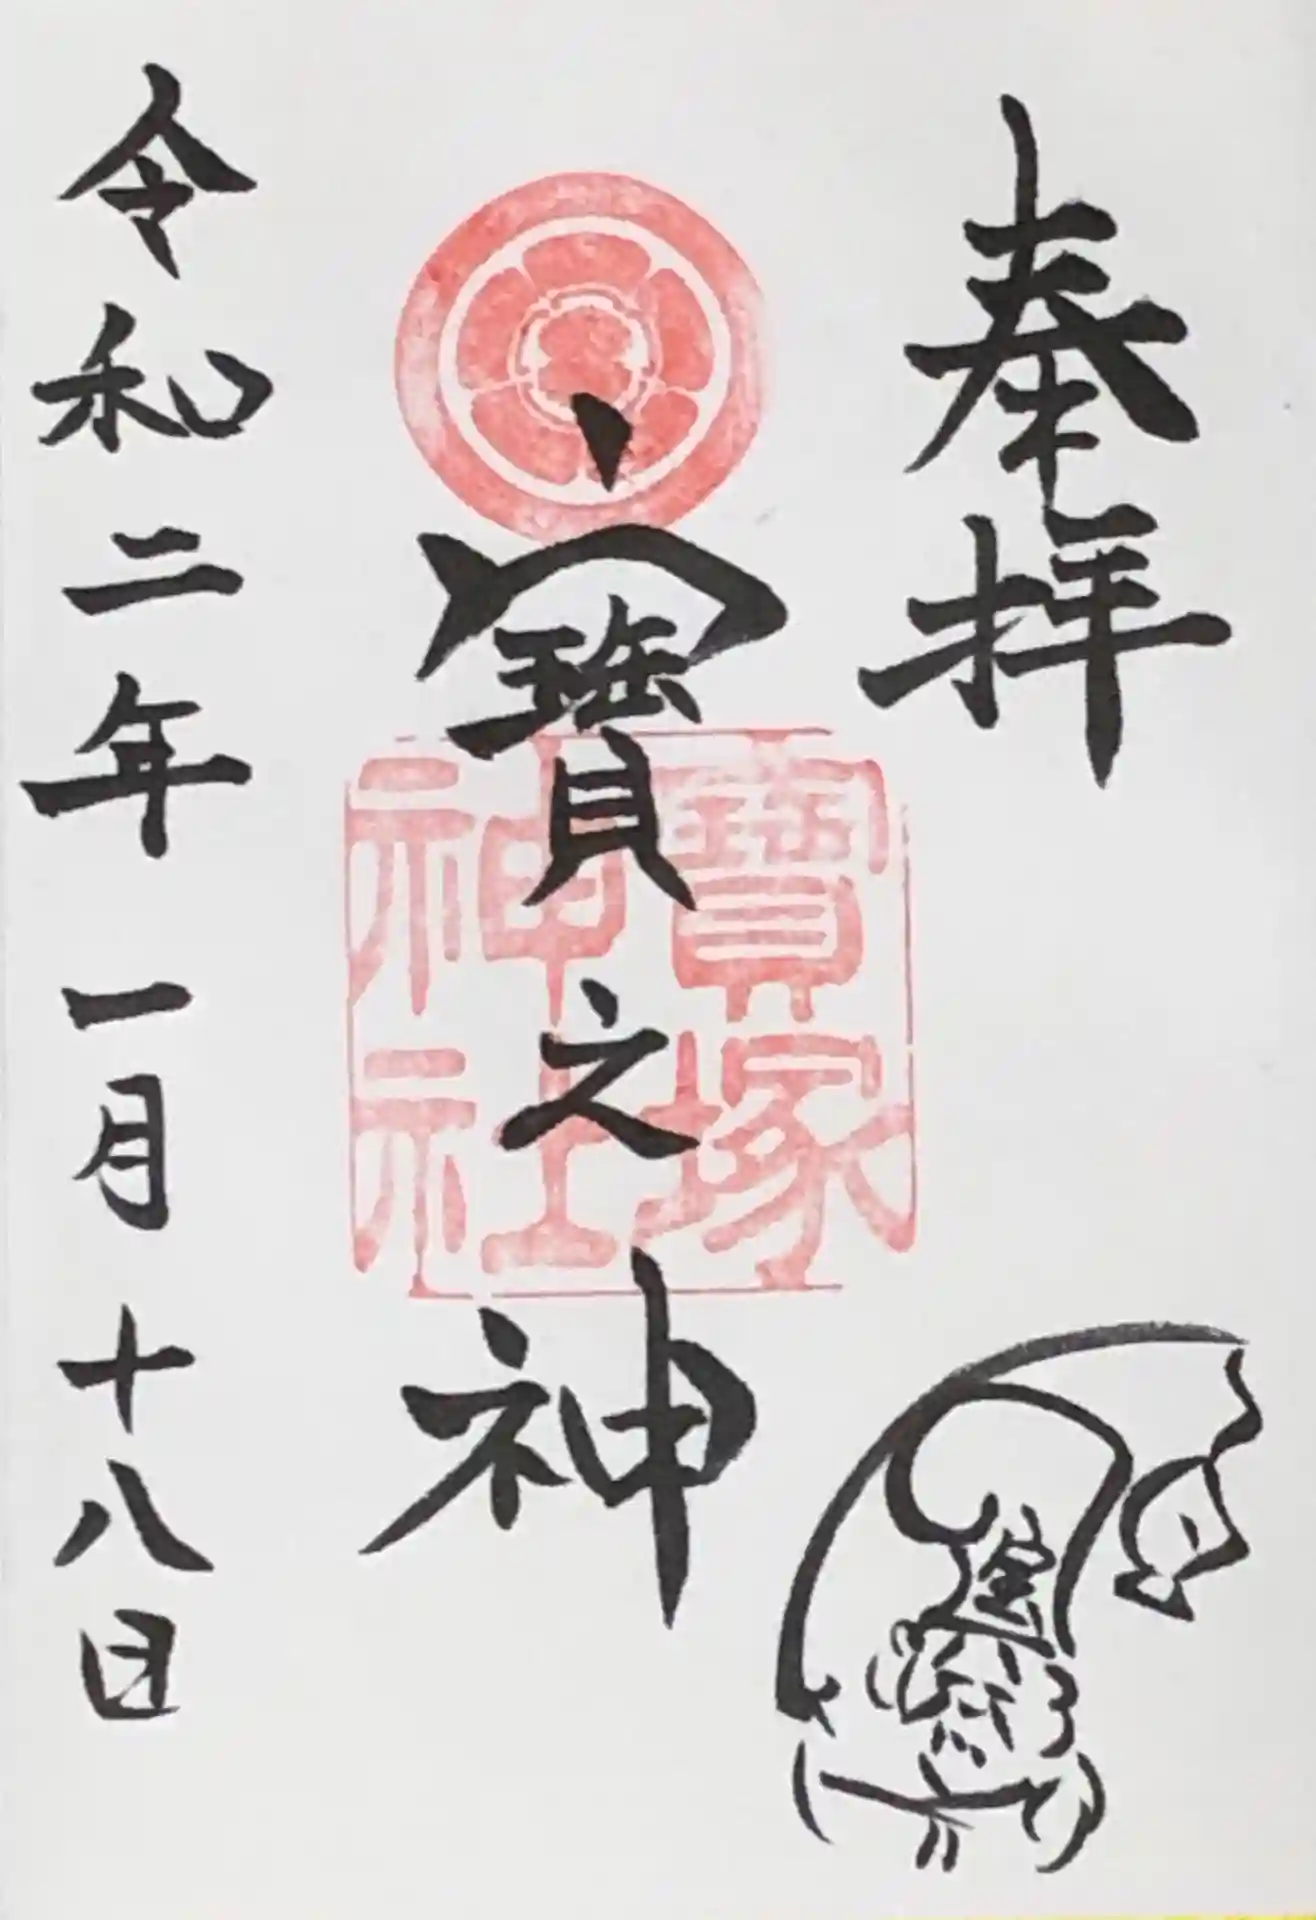 奉拝
寶之神
寶塚
神社
令和二年一月十八日